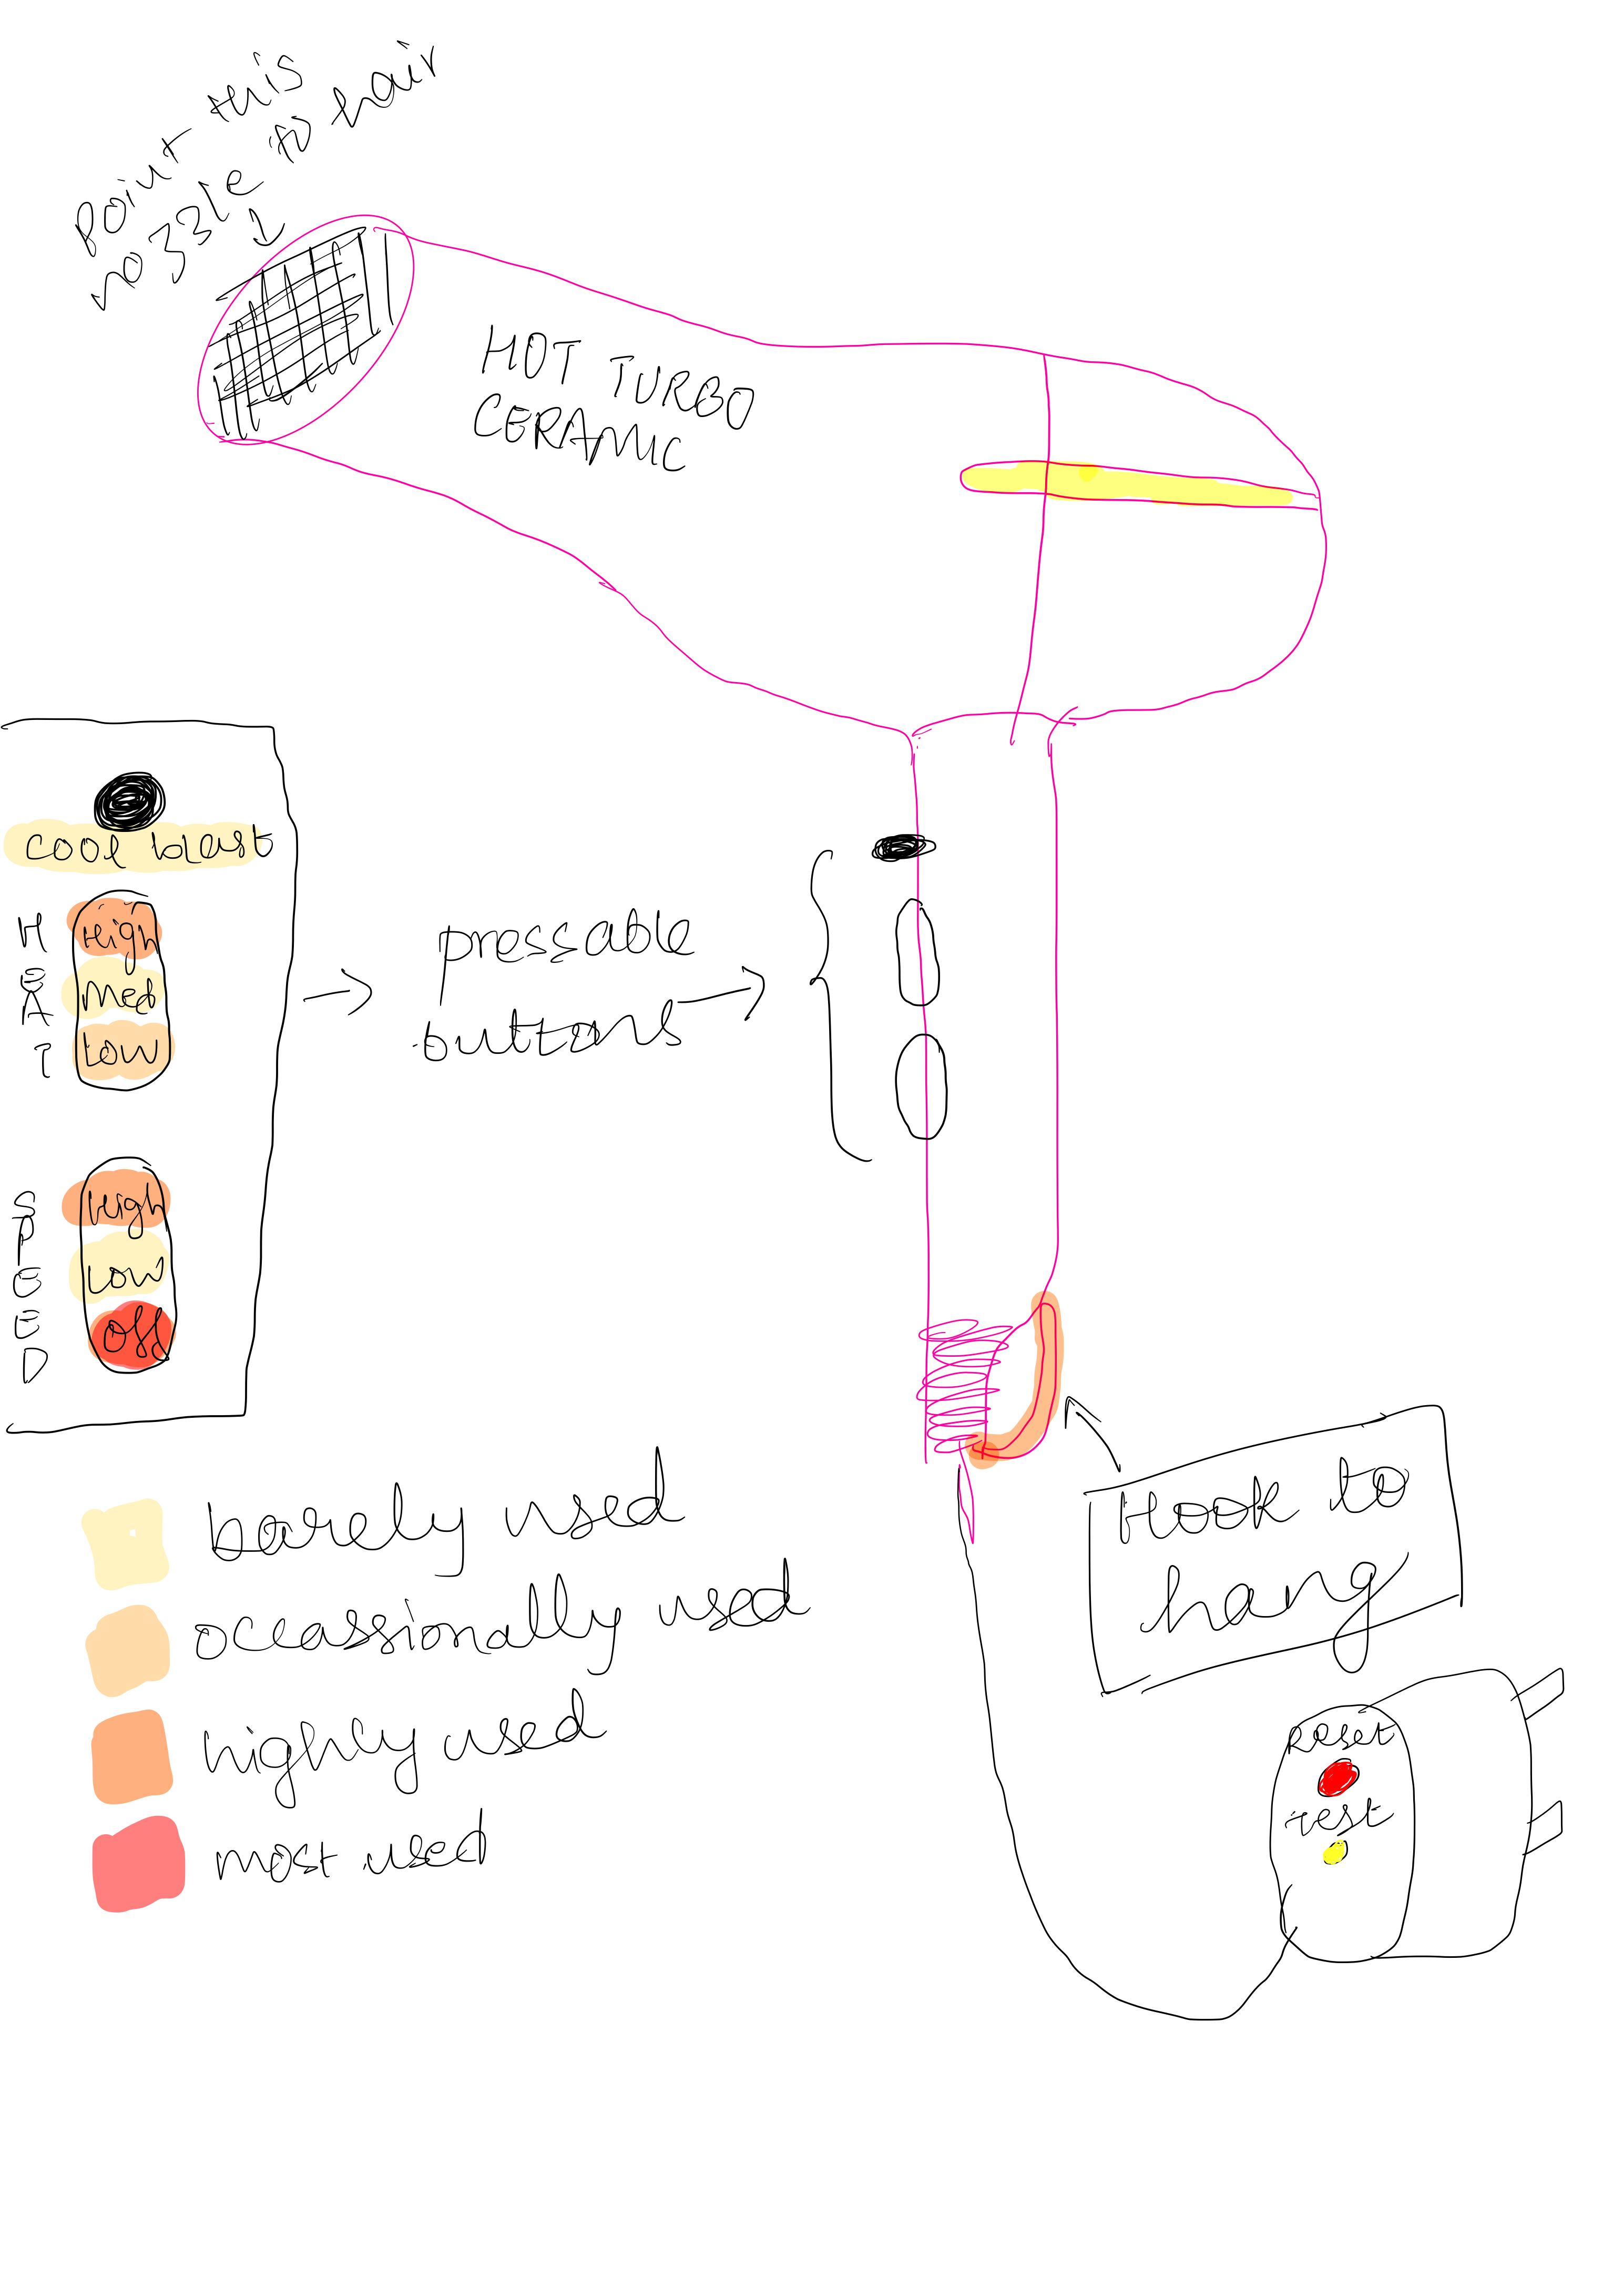 Point this
nozzle to hair
HOT TURBO
CERAMIC
cool blast
HEAT
High
Med
Low
SPEED
high
Low
Off
pressable
buttons
Hook to
hang
Reset
Test
barely used
occassionally used
highly used
most used